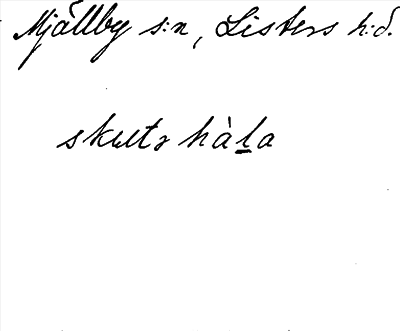 Mjällby s:n, Listers h:d.
skutz hàla